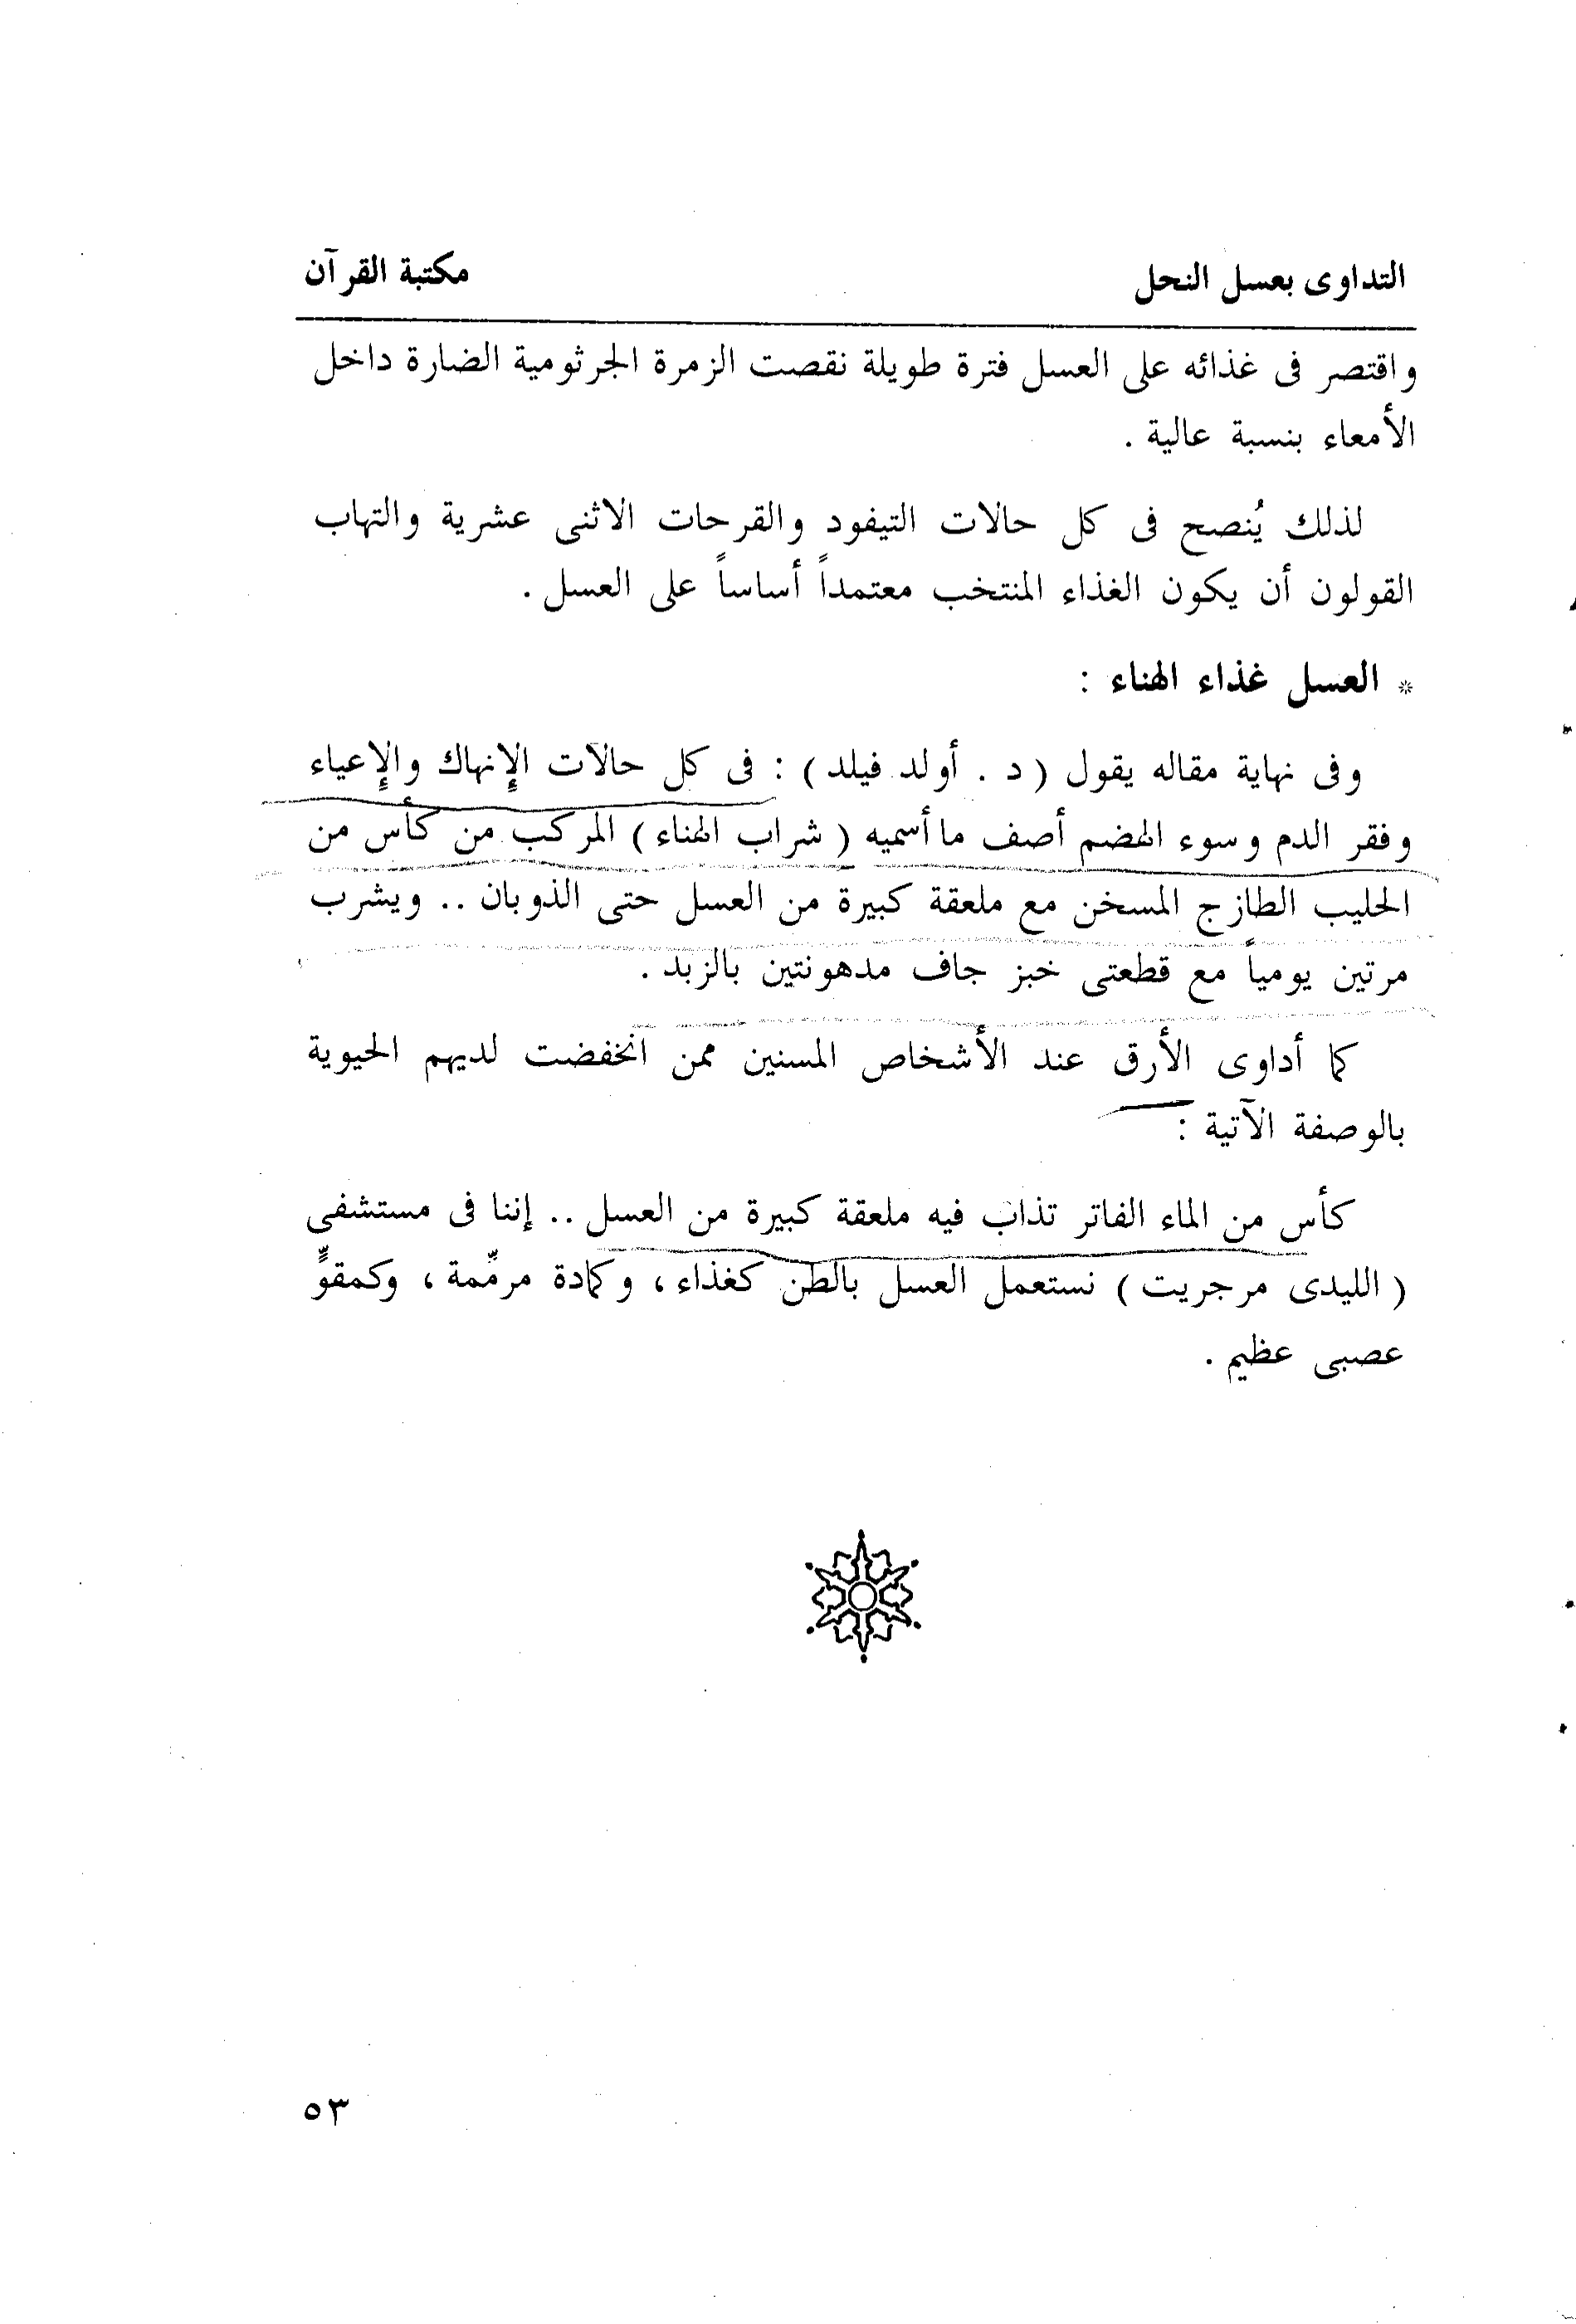 التداوى بعسل النحل
مكتبة القرآن
واقتصر فى غذائه على العسل فترة طويلة نقصت الزمرة الجرثومية الضارة داخل
الأمعاء بنسبة عالية .
لذلك يُنصح فى كل حالات التيفود والقرحات الاثنى عشرية والتهاب
القولون أن يكون الغذاء المنتخب معتمداً أساساً على العسل .
* العسل غذاء الهناء :
وفى نهاية مقاله يقول ( د . أولد فيلد ) : فى كل حالات الإنهاك والإعياء
وفقر الدم وسوء الهضم أصف ما أسميه ( شراب الهناء ) المركب من كأس من
الحليب الطازج المسخن مع ملعقة كبيرة من العسل حتى الذوبان .. ويشرب
مرتين يومياً مع قطعتى خبز جاف مدهونتين بالزبد .
كما أداوى الأرق عند الأشخاص المسنين ممن انخفضت لديهم الحيوية
بالوصفة الآتية :
كأس من الماء الفاتر تذاب فيه ملعقة كبيرة من العسل .. إننا فى مستشفى
( الليدى مرجريت ) نستعمل العسل بالطن كغذاء ، وكمادة مرمّمة ، وكمقوٍّ
عصبى عظيم .
٥٣